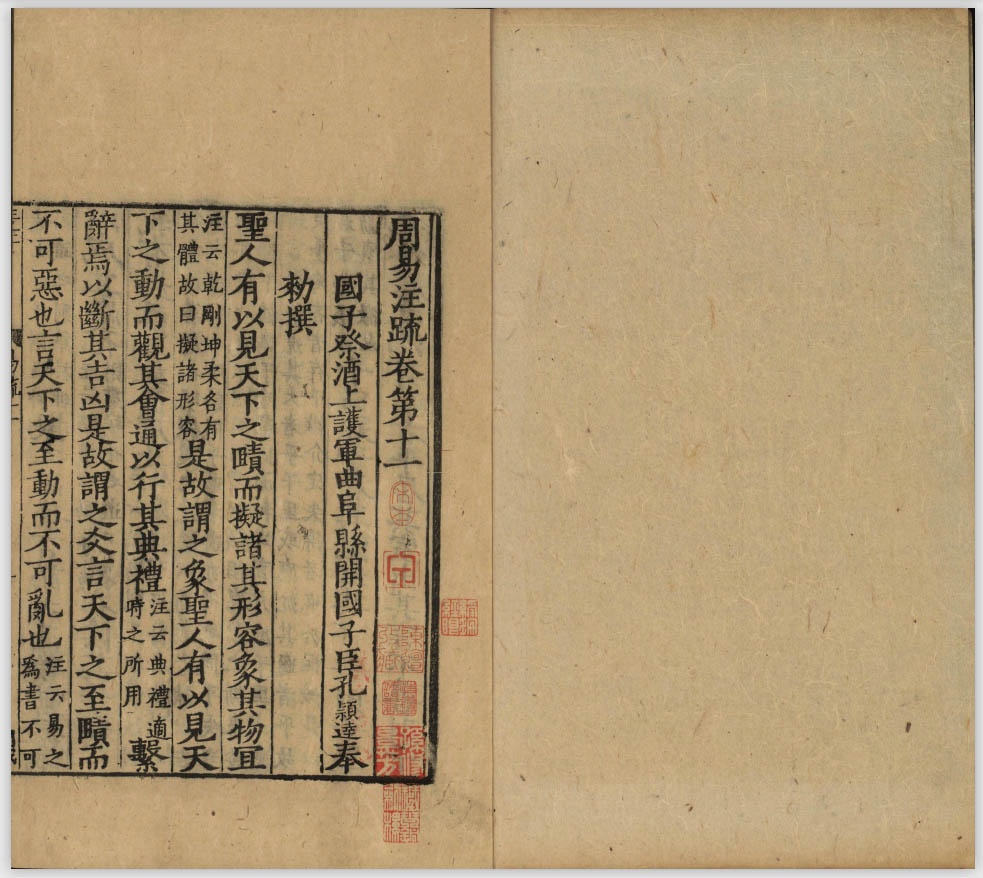 周易注疏卷第十一
國子祭酒上護軍曲阜縣開國子臣孔穎達奉
勑撰
聖人有以見天下之賾而擬諸其形容象其物冝
注云乾剛坤柔各有
其體故曰擬諸形容
是故謂之象聖人有以見天
下之動而觀其會通以行其典禮
注云典禮適
時之所用
繫
辭焉以斷其吉凶是故謂之爻言天下之至賾而
不可惡也言天下之至動而不可亂也
注云易之
爲書不可